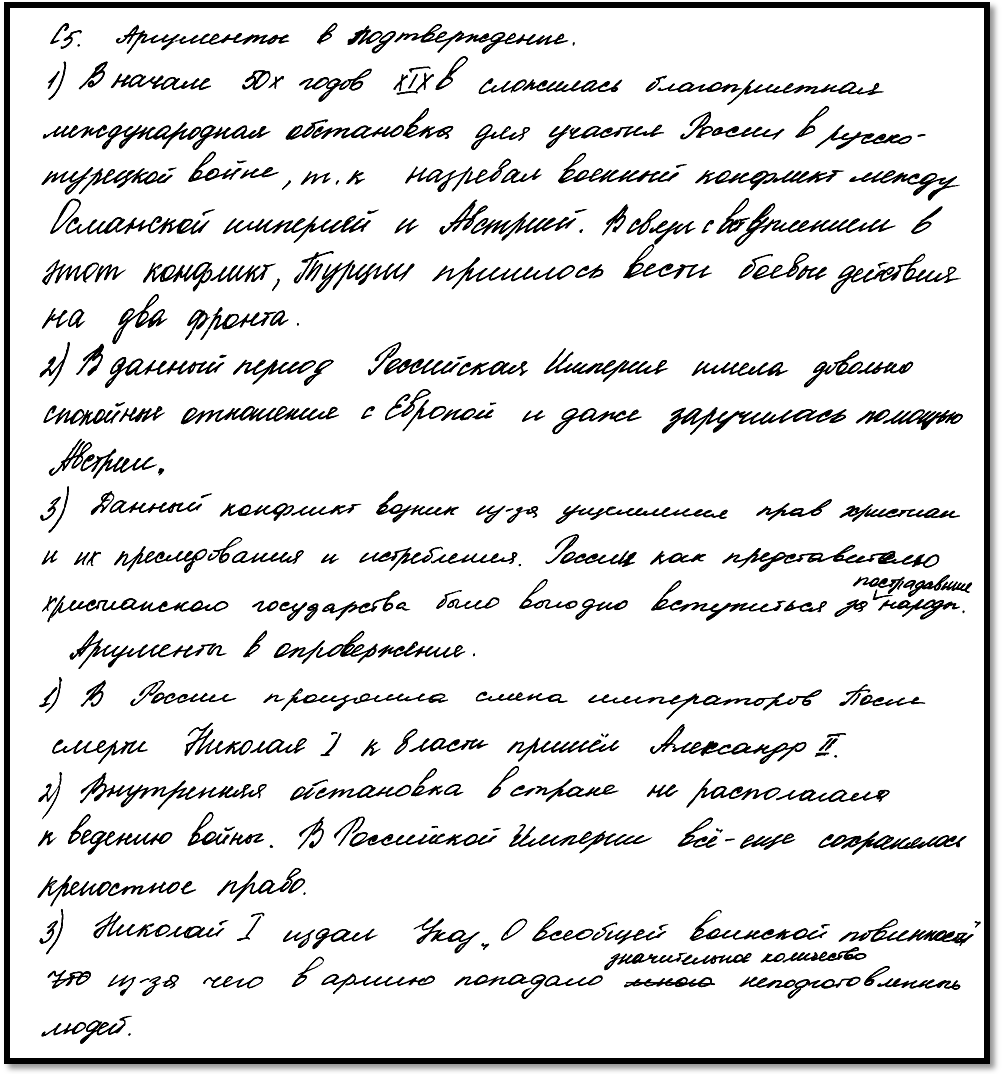 С5. Аргументы в подтверждение.
1) В начале 50х годов XIX в сложилась благоприятная
международная обстановка для участия России в русско-
турецкой войне, т.к назревал военный конфликт между
Османской империей и Австрией. В связи с вступлением в
этот конфликт, Турции пришлось вести боевые действия
на два фронта.
2) В данный период Российская Империя имела довольно
спокойные отношения с Европой и даже заручилась помощью
Австрии.
3) Данный конфликт возник из-за ущемления прав христиан
и их преследования и истребления. России как представителю
пострадавшие
христианского государства было выгодно вступиться за народы.
Аргументы в опровержение.
1) В России произошла смена императоров После
смерти Николая I к власти пришёл Александр II.
2) Внутренняя обстановка в стране не располагала
к ведению войны. В Российской Империи всё-еще сохранялось
крепостное право.
3) Николай I издал Указ „О всеобщей воинской повинности"
значительное количество
что из-за чего в армию попадало много неподготовленных
людей.